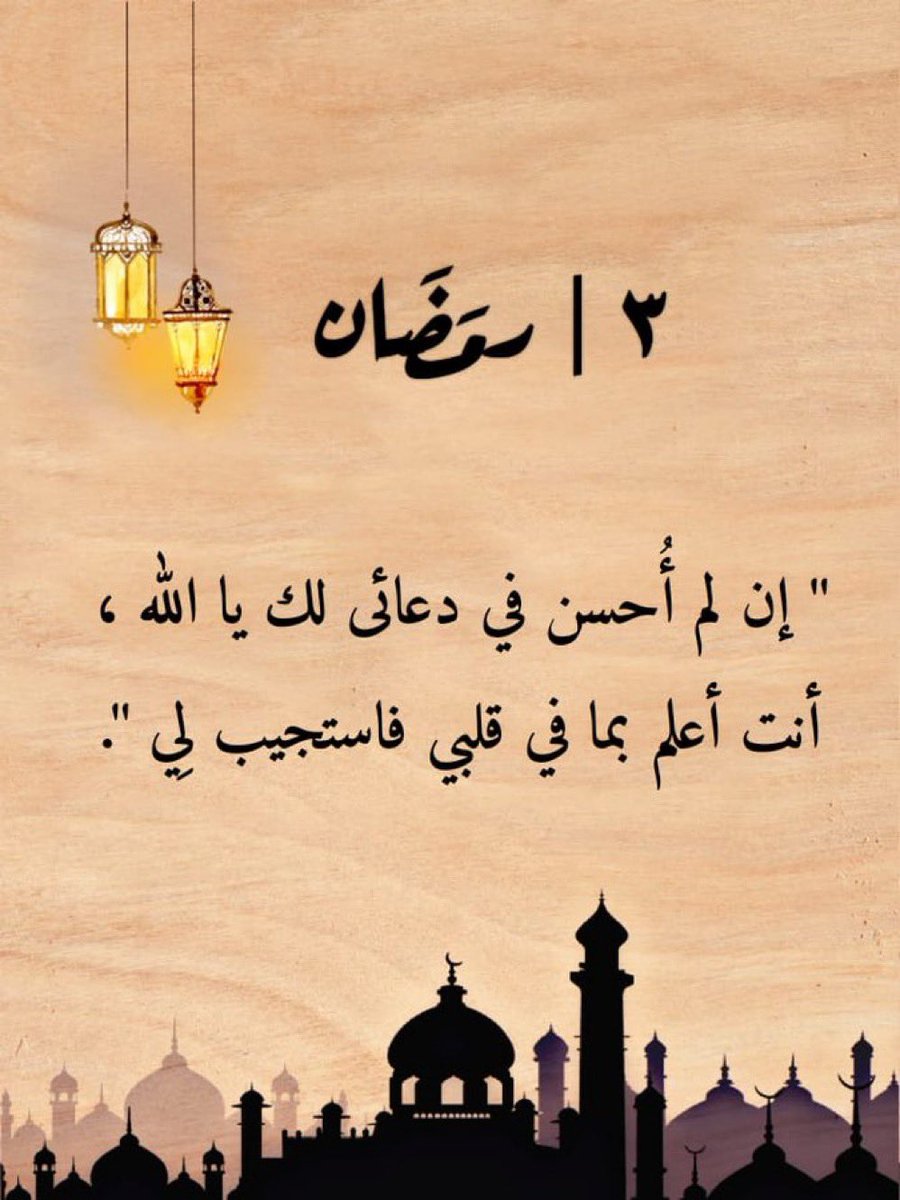 ٣ | رمَضَان
" إن لم أُحسن في دعائى لك يا الله ،
أنت أعلم بما في قلبي فاستجيب لِي ".